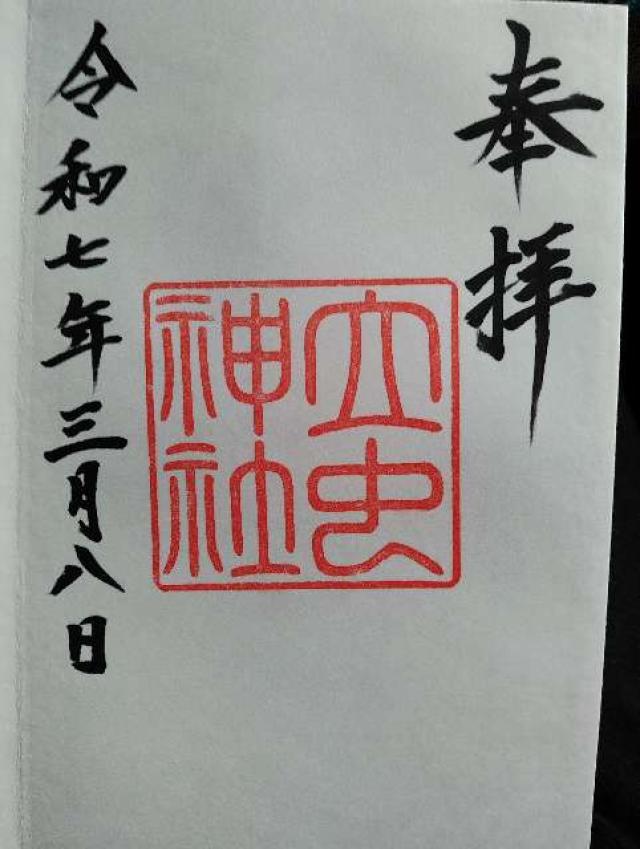 奉拝
立虫
神社
令和七年三月八日